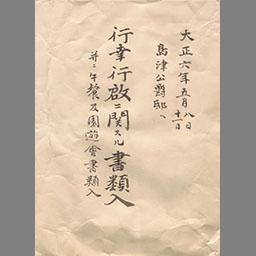 大正六年五月八日
十一日
島津公爵邸へ
行幸行啓ニ関スル書類入
並ニ午餐及園遊會書類入